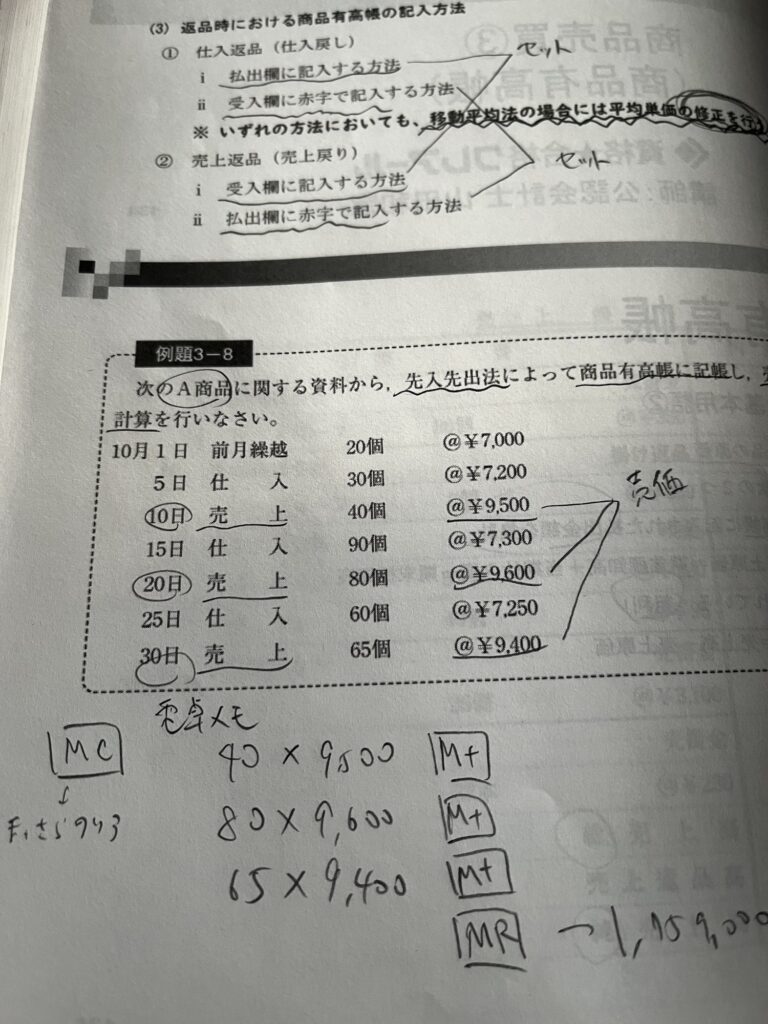 (3) 返品時における商品有高帳の記入方法
① 仕入返品（仕入戻し）
i 払出欄に記入する方法
セット
ii 受入欄に赤字で記入する方法
※ いずれの方法においても、移動平均法の場合には平均単価の修正を行う
② 売上返品（売上戻り）
セット
i 受入欄に記入する方法
ii 払出欄に赤字で記入する方法
例題3－8
次のA商品に関する資料から、先入先出法によって商品有高帳に記帳し、
計算を行いなさい。
10月1日 前月繰越 20個 @￥7,000
5日 仕入 30個 @￥7,200
売価
10日 売上 40個 @￥9,500
15日 仕入 90個 @￥7,300
20日 売上 80個 @￥9,600
25日 仕入 60個 @￥7,250
30日 売上 65個 @￥9,400
電卓メモ
MC 40 × 9,500 M+
↓
まっさらにする
80 × 9,600 M+
65 × 9,400 M+
MR → 1,759,000